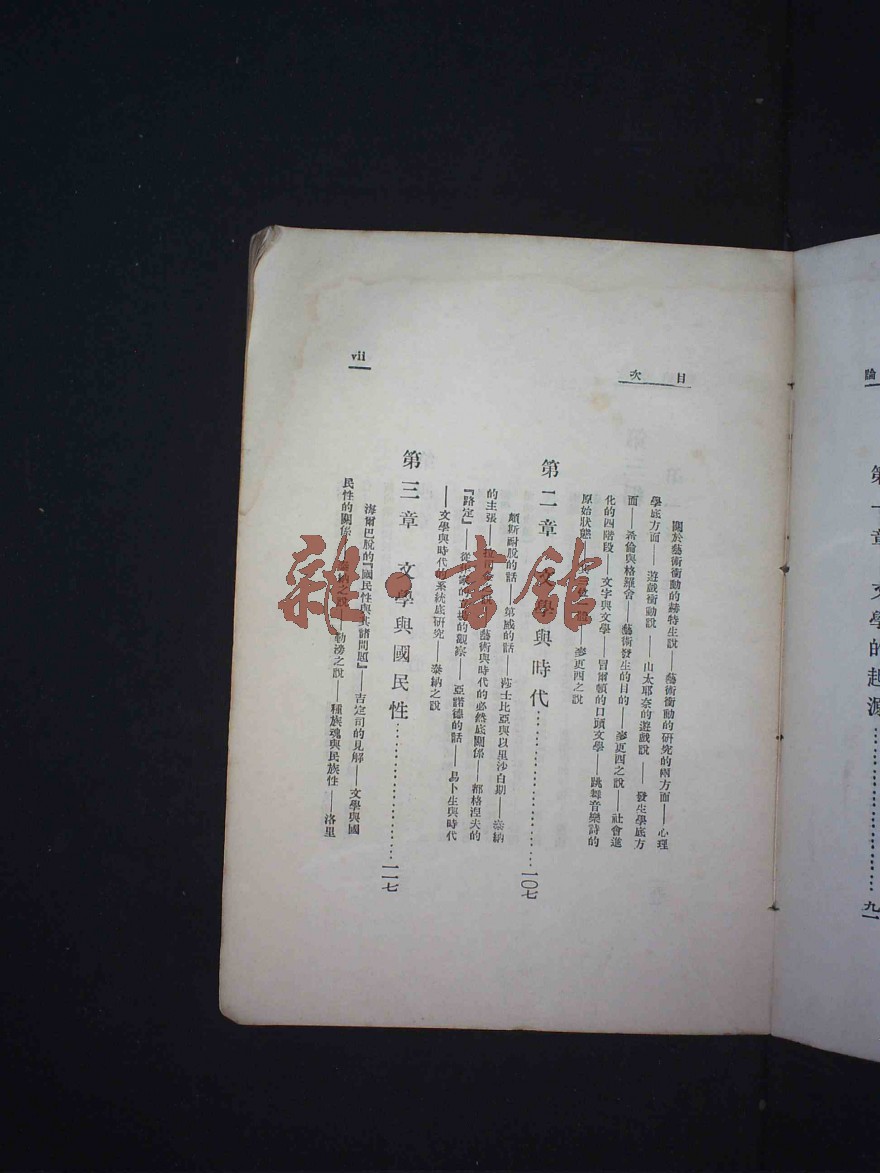 論
第一章 文學的起源……………………九一
目次
關於藝術衝動的赫特生說——藝術衝動的研究的兩方面——心理
學底方面——遊戲衝動說——山太耶奈的遊戲說——發生學底方
面——希倫與格羅舍——藝術發生的目的——麥更西之說——社會進
化的四階段——文字與文學——冒爾頓的口頭文學——跳舞音樂詩的
原始狀態——麥更西之說
第二章 文學與時代……………………一〇七
頗斯耐脫的話——第威的話——莎士比亞與以里沙白期——泰納
的主張——藝術與時代的必然底關係——都格涅夫的
『路定』——從作家的立場的觀察——亞諾德的話——易卜生與時代
——文學與時代的系統底研究——泰納之說
第三章 文學與國民性……………………一一七
海爾巴脫的『國民性與其諸問題』——吉定司的見解——文學與國
民性的關係——泰納之說——勒滂之說——種族魂與民族性——洛里
vii
雜·書館